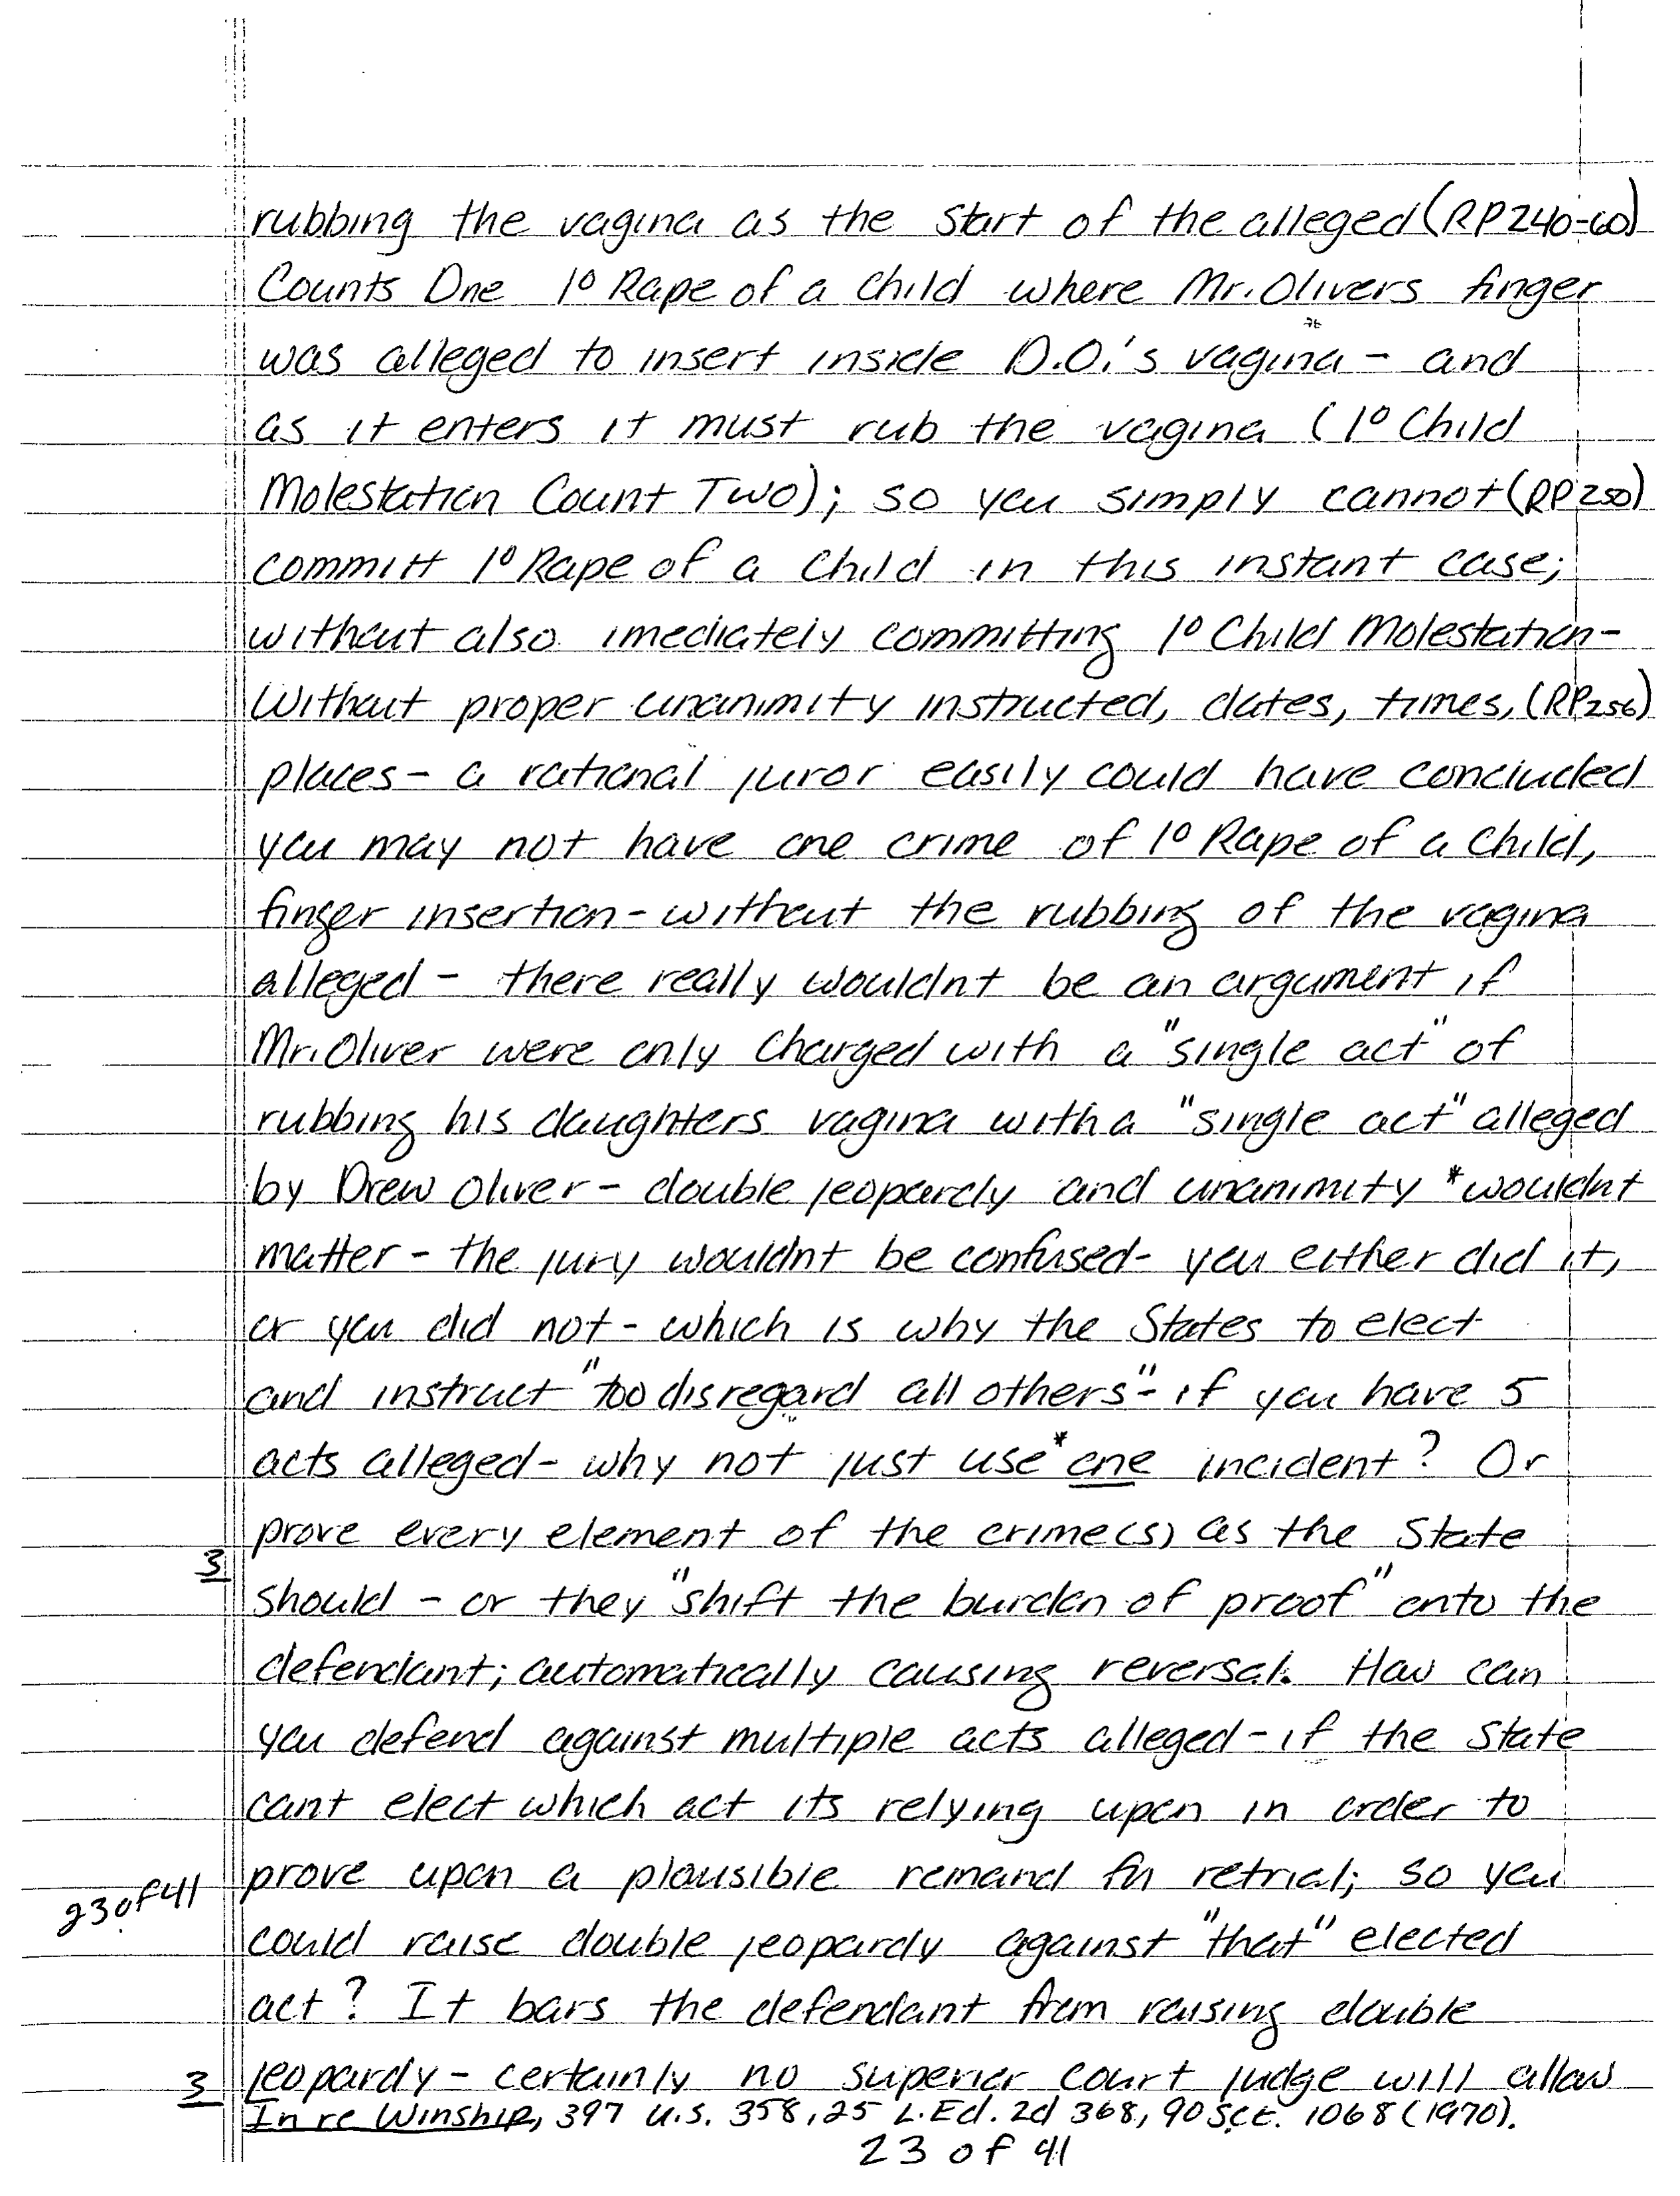 rubbing the vagina as the start of the alleged (RP240-60)
Counts One 1º Rape of a Child where Mr. Olivers finger
was alleged to insert inside D.O.'s vagina - and
as it enters it must rub the vagina (1º Child
Molestation Count Two); so you simply cannot (RP250)
committ 1º Rape of a Child in this instant case;
without also imediately committing 1º Child Molestation-
Without proper unanimity instructed, dates, times, (RP256)
places - a rational juror easily could have concluded
you may not have one crime of 1º Rape of a Child,
finger insertion - without the rubbing of the vagina
alleged - there really wouldnt be an argument if
Mr. Oliver were only charged with a "single act" of
rubbing his daughters vagina with a "single act" alleged
by Drew Oliver - double jeopardy and unanimity *wouldnt
matter - the jury wouldnt be confused - you either did it,
or you did not - which is why the States to elect
and instruct "too disregard all others" - if you have 5
acts alleged - why not just use *one incident? Or
prove every element of the crime(s) as the State
3
should - or they "shift the burden of proof" onto the
defendant; automatically causing reversal. How can
you defend against multiple acts alleged - if the State
cant elect which act its relying upon in order to
prove upon a plausible remand for retrial; so you
23 of 41
could raise double jeopardy against "that" elected
act? It bars the defendant from raising double
jeopardy - certainly no superior court judge will allow
3 In re Winship, 397 U.S. 358, 25 L.Ed. 2d 368, 90 S.Ct. 1068 (1970).
23 of 41